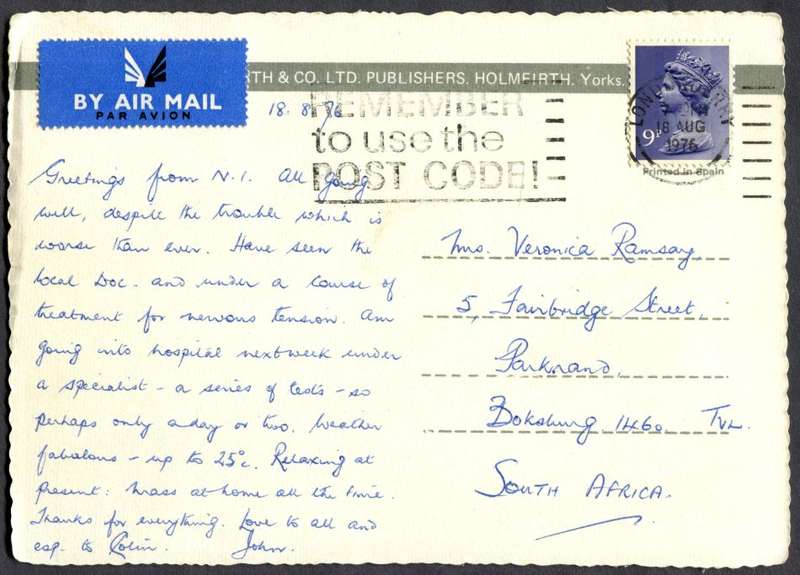 RTH & CO. LTD. PUBLISHERS. HOLMFIRTH. Yorks.
BY AIR MAIL
PAR AVION
18.8.76
REMEMBER
to use the
POST CODE!
18 AUG
1976
9
Printed in Spain
Greetings from N.I. All going
well, despite the trouble which is
worse than ever. Have seen the
local Doc. and under a course of
treatment for nervous tension. Am
going into hospital next week under
a specialist - a series of tests - so
perhaps only a day or two. Weather
fabulous - up to 25°c. Relaxing at
present: Mass at home all the time.
Thanks for everything. Love to all and
esp. to Colin. John.
Mrs. Veronica Ramsay,
5, Fairbridge Street,
Parkrand,
Boksburg 1460 TVL.
SOUTH AFRICA.